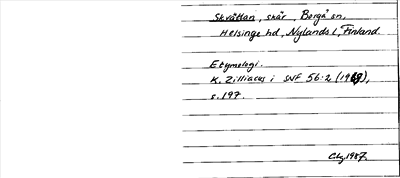 Skvättan, skär, Borgå sn,
Helsinge hd, Nylands l, Finland.
Etymologi.
K. Zilliacus i SNF 56:2 (1969),
s. 197.
1987